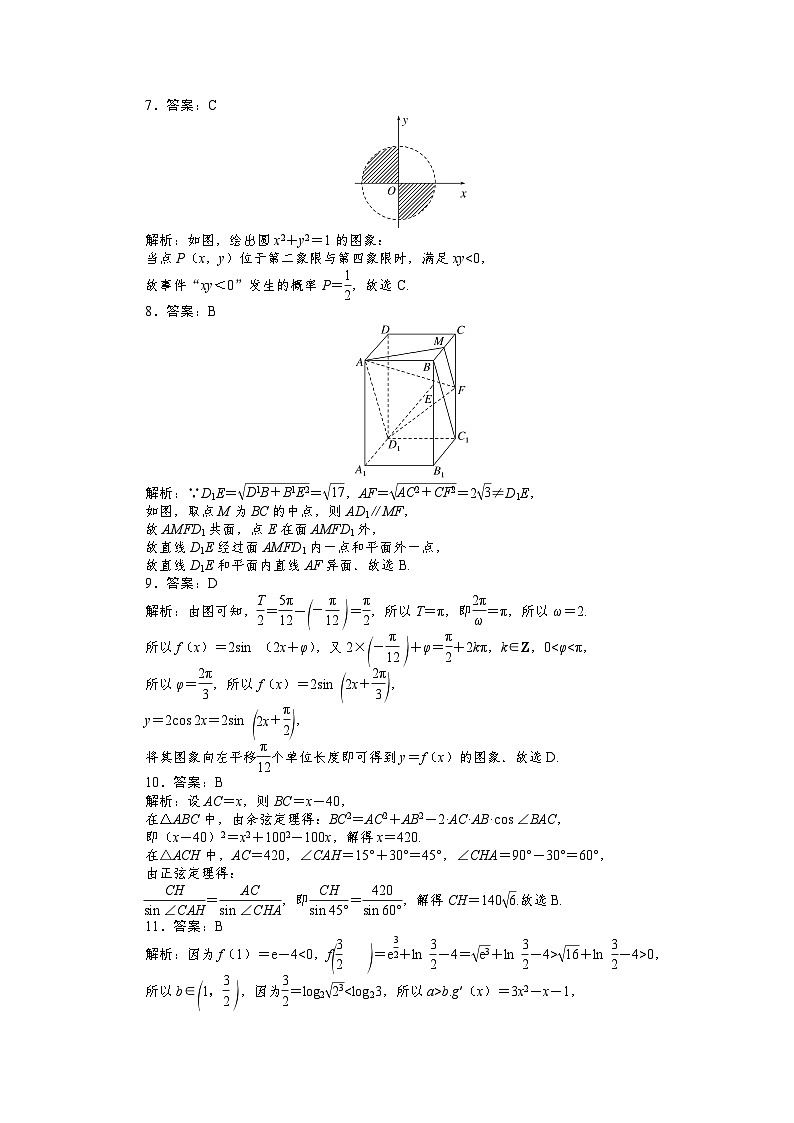 7.答案：C
y
O
x
解析：如图，绘出圆 x²＋y²＝1 的图象：
当点 P（x，y）位于第二象限与第四象限时，满足 xy<0，
故事件“xy＜0”发生的概率 P＝1/2，故选 C.
8.答案：B
D C
M
A B
F
E
D₁ C₁
A₁ B₁
解析：∵D₁E＝√(D¹B＋B¹E²)＝√17，AF＝√(AC²＋CF²)＝2√3≠D₁E，
如图，取点 M 为 BC 的中点，则 AD₁∥MF，
故 AMFD₁ 共面，点 E 在面 AMFD₁ 外，
故直线 D₁E 经过面 AMFD₁ 内一点和平面外一点，
故直线 D₁E 和平面内直线 AF 异面．故选 B.
9.答案：D
解析：由图可知，T/2＝5π/12－(－π/12)＝π/2，所以 T＝π，即2π/ω＝π，所以 ω＝2.
所以 f（x）＝2sin （2x＋φ），又 2×(－π/12)＋φ＝π/2＋2kπ，k∈Z，0<φ<π，
所以 φ＝2π/3，所以 f（x）＝2sin (2x＋2π/3)，
y＝2cos 2x＝2sin (2x＋π/2)，
将其图象向左平移π/12个单位长度即可得到 y＝f（x）的图象．故选 D.
10.答案：B
解析：设 AC＝x，则 BC＝x－40，
在△ABC 中，由余弦定理得：BC²＝AC²＋AB²－2·AC·AB·cos ∠BAC，
即（x－40）²＝x²＋100²－100x，解得 x＝420.
在△ACH 中，AC＝420，∠CAH＝15°＋30°＝45°，∠CHA＝90°－30°＝60°，
由正弦定理得：
CH/sin ∠CAH＝AC/sin ∠CHA，即CH/sin 45°＝420/sin 60°，解得 CH＝140√6.故选 B.
11.答案：B
解析：因为 f（1）＝e－4<0，f(3/2)＝e^(3/2)＋ln 3/2－4＝√e³＋ln 3/2－4>√16＋ln 3/2－4>0，
所以 b∈(1，3/2)，因为3/2＝log₂√2³<log₂3，所以 a>b.g′（x）＝3x²－x－1，